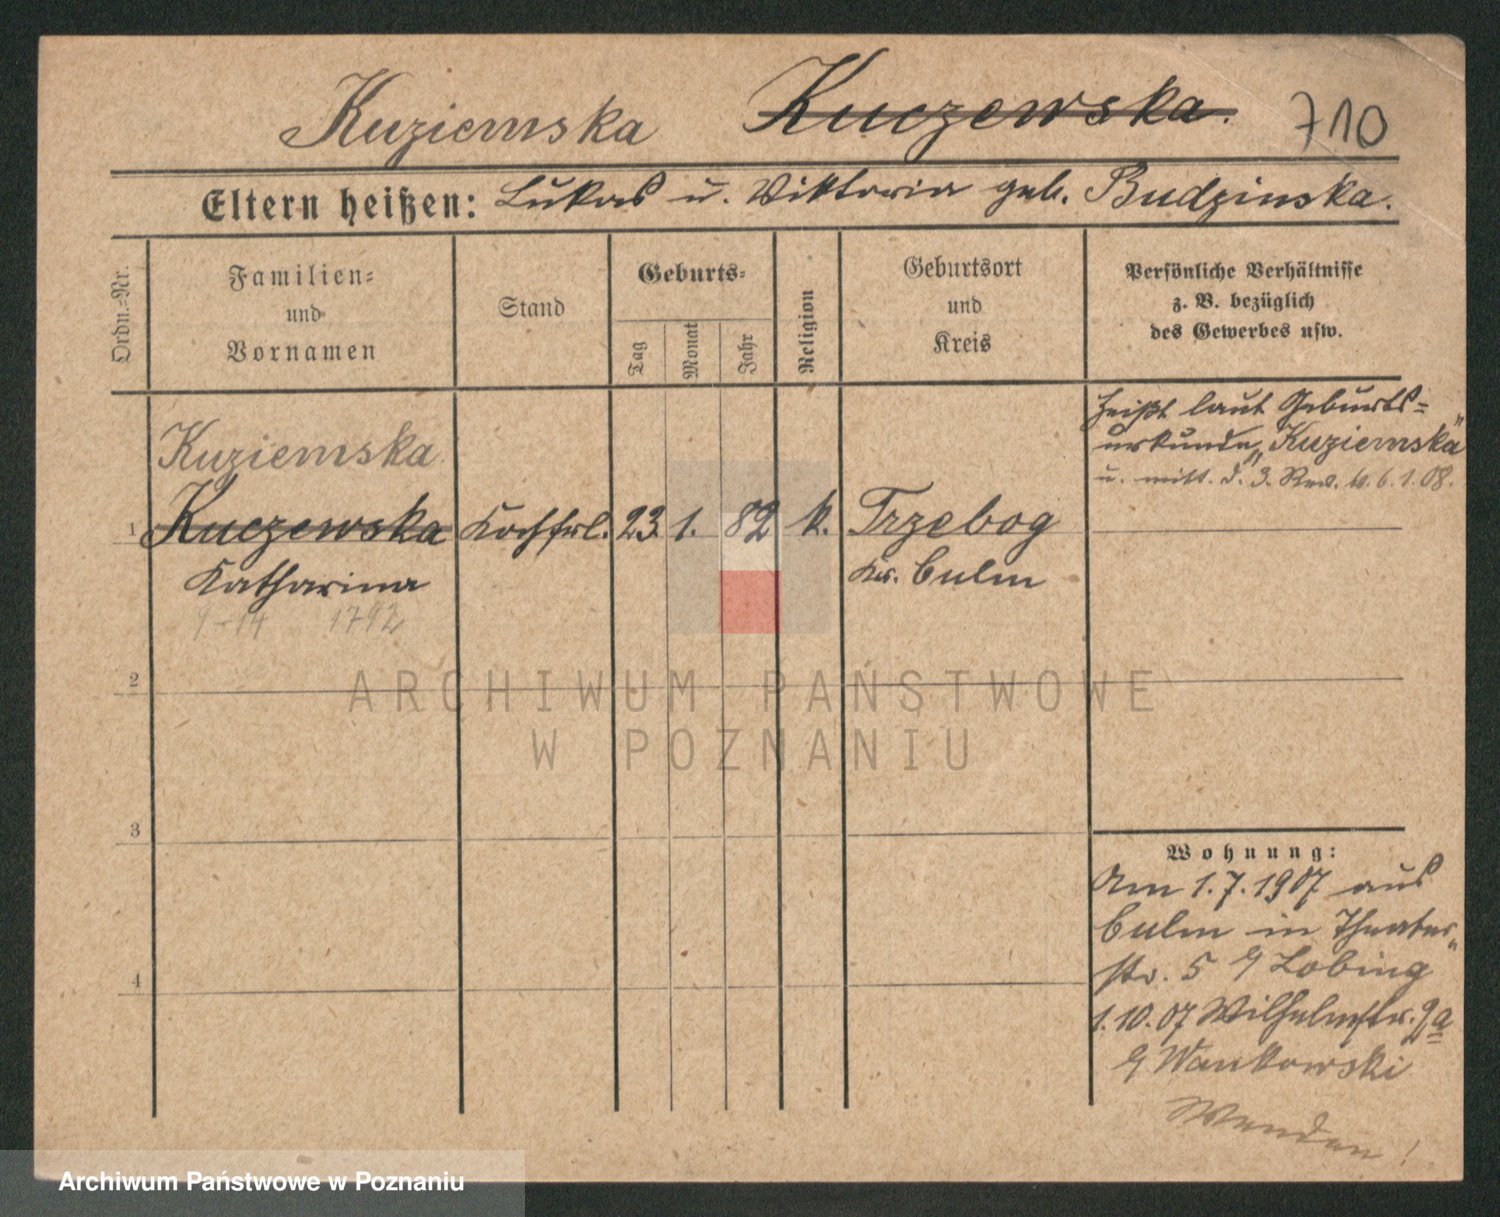 Kuziemska Kuczewska. 710
Eltern heißen: Lukas u. Viktoria geb. Budzinska.
Ordn.-Nr.
Familien-
und
Vornamen
Stand
Geburts-
Tag
Monat
Jahr
Religion
Geburtsort
und
Kreis
Persönliche Verhältnisse
z. B. bezüglich
des Gewerbes usw.
heißt laut Geburts-
urkunde „Kuziemska"
u. mitt. d. 3. Rev. v. 6.1.08.
Kuziemska
1 Kuczewska Kochfrl. 23. 1. 82 k. Trzebog
Katharina Kr. Culm
9-14 1792
2
3
4
Wohnung:
Am 1.7.1907 aus
Culm in Theater-
str. 5 b/ Lobing
1.10.07 Wilhelmstr. 9a
b/ Wankowski
Wenden!
ARCHIWUM PAŃSTWOWE
W POZNANIU
Archiwum Państwowe w Poznaniu